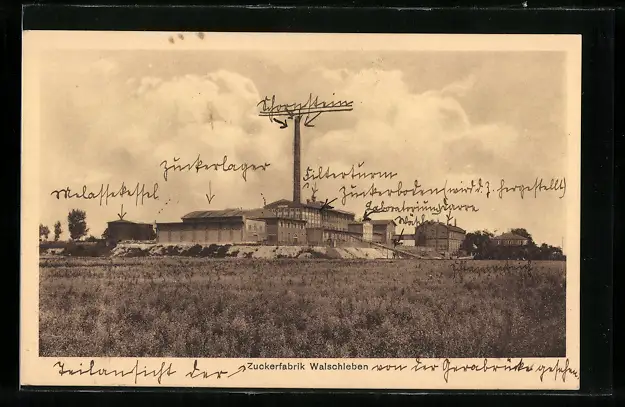 Schornstein
Zuckerlager
Filterturm
Melassekessel
Zuckerboden (wird z. Z. hergestellt)
Laboratorium
Teilansicht der Zuckerfabrik Walschleben von der Gerabrücke gesehen.